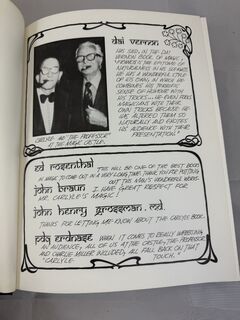 dai vernon
HE SAID, IN THE DAI
VERNON BOOK OF MAGIC,
"FRANCIS IS THE EPITOME OF
NATURALNESS IN HIS WORK.
HE HAS A WONDERFUL STYLE
OF HIS OWN, IN WHICH HE
COMBINES HIS TERRIFIC
SENSE OF HUMOUR WITH
HIS TRICKS... HE EVEN FOOLS
MAGICIANS WITH THEIR
OWN TRICKS BECAUSE HE
HAS ALTERED THEM SO
NATURALLY AND EXCITES
HIS AUDIENCE WITH THEIR
PRESENTATION."
CARLYLE AND "THE PROFESSOR"
AT THE MAGIC CASTLE.
ed rosenthal THIS WILL BE ONE OF THE BEST BOOKS
IN MAGIC TO COME OUT IN A VERY LONG TIME. THANK YOU FOR PUTTING
OUT THIS MAN'S WONDERFUL WORK.
john braun I HAVE GREAT RESPECT FOR
MR. CARLYLE'S MAGIC!
john henry grossman, md.
THANKS FOR LETTING ME KNOW ABOUT THE CARLYLE BOOK.
pdq erdnase WHEN IT COMES TO REALLY IMPRESSING
AN AUDIENCE, ALL OF US AT THE CASTLE, THE PROFESSOR
AND CHARLIE MILLER INCLUDED, ALL FALL BACK ON THAT
"CARLYLE TOUCH."